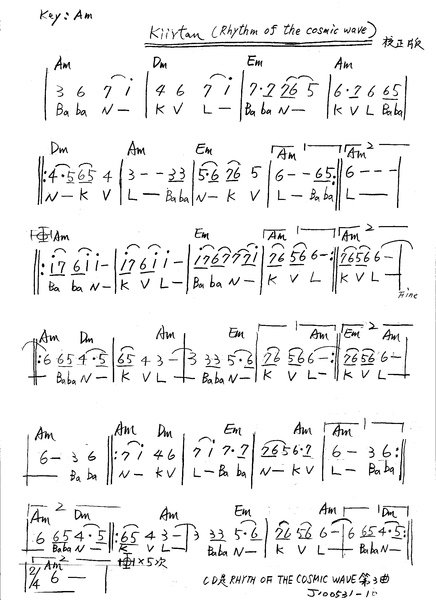 Key: Am
Kiirtan (Rhythm of the cosmic wave) 校正版
Am Dm Em Am
3 6 7 i | 4 6 7 i | 7·7 76 5 | 6·7 6 65
Ba ba N — K V L — Ba ba N — K V L Ba ba
Dm Am Em Am 1 Am 2
4·5 65 4 | 3 - - 33 | 5·6 76 5 | 6 - - 65 :| 6 - - -
N — K V L — Ba ba N — K V L — Ba ba L —
Am Am 1 Am 2
i7 6i i - | i7 6i i - | i7 67 77 7i | 76 56 6 - :| 76 56 6 -
Ba ba N — K V L — Ba ba N — K V L — K V L —
Fine
Am Dm Am Em 1 Am Em 2 Am
6 65 4·5 | 65 4 3 - | 3 33 5·6 | 76 56 6 - :| 76 56 6 -
Ba ba N — K V L — Ba ba N — K V L — K V L —
Am Am Dm Em Am Am 1
6 - 3 6 |: 7 i 4 6 | 7 i 7·7 | 76 5 6·7 | 6 - 3 6 :|
Ba ba N — K V L — Ba ba N — K V L — Ba ba
Am 2 Dm Am Em Am Am 1 Dm
6 65 4·5 |: 65 4 3 - | 3 33 5·6 | 76 56 6 - | 6 65 4·5 :|
Ba ba N — K V L — Ba ba N — K V L — Ba ba N —
Am 2 ×5次
2/4 6 —
CD是 RHYTH OF THE COSMIC WAVE 第3曲
J-00531-10